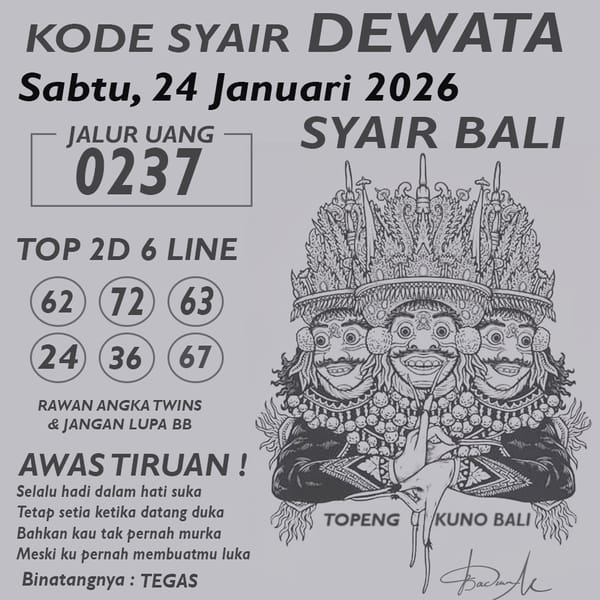 KODE SYAIR DEWATA
Sabtu, 24 Januari 2026
JALUR UANG
0237
SYAIR BALI
TOP 2D 6 LINE
62 72 63
24 36 67
RAWAN ANGKA TWINS
& JANGAN LUPA BB
AWAS TIRUAN !
Selalu hadi dalam hati suka
Tetap setia ketika datang duka
Bahkan kau tak pernah murka
Meski ku pernah membuatmu luka
Binatangnya : TEGAS
TOPENG KUNO BALI